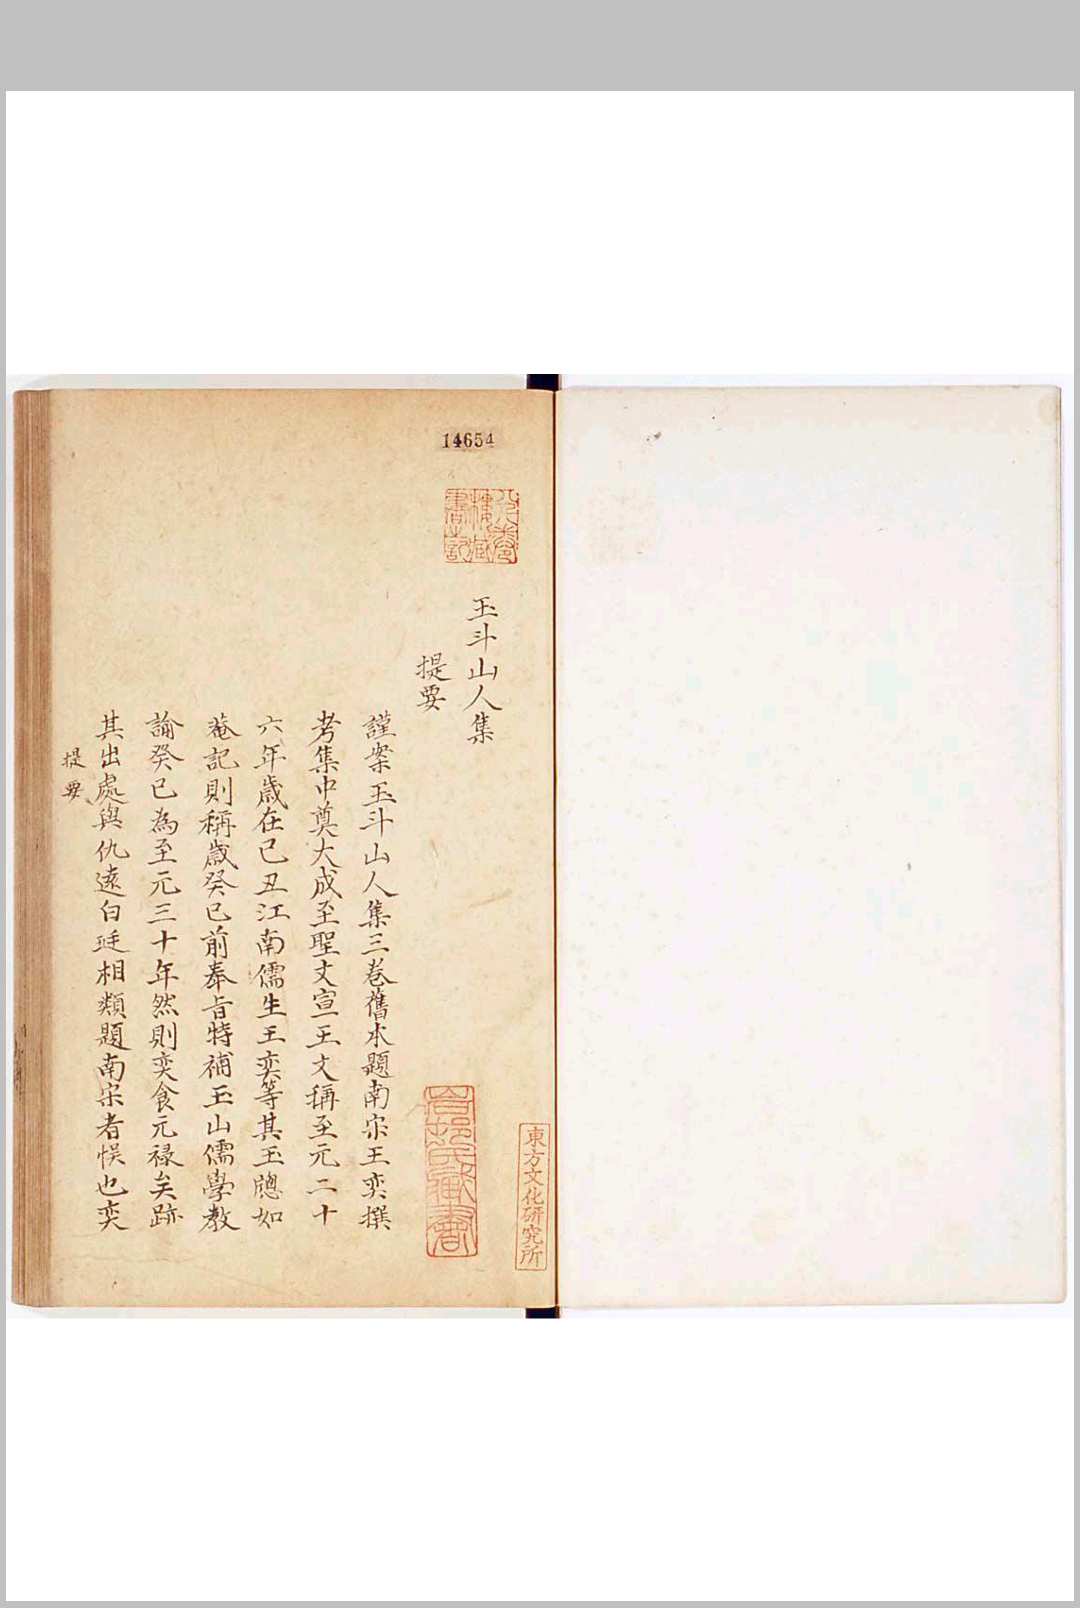 14654
玉斗山人集
提要
謹案玉斗山人集三卷舊本題南宋王奕撰
考集中奠大成至聖文宣王文稱至元二十
六年歲在己丑江南儒生王奕等其玉牕如
菴記則稱歲癸巳前奉旨特補玉山儒學教
諭癸巳為至元三十年然則奕食元祿矣跡
其出處與仇遠白珽相類題南宋者悞也奕
提要
東方文化研究所